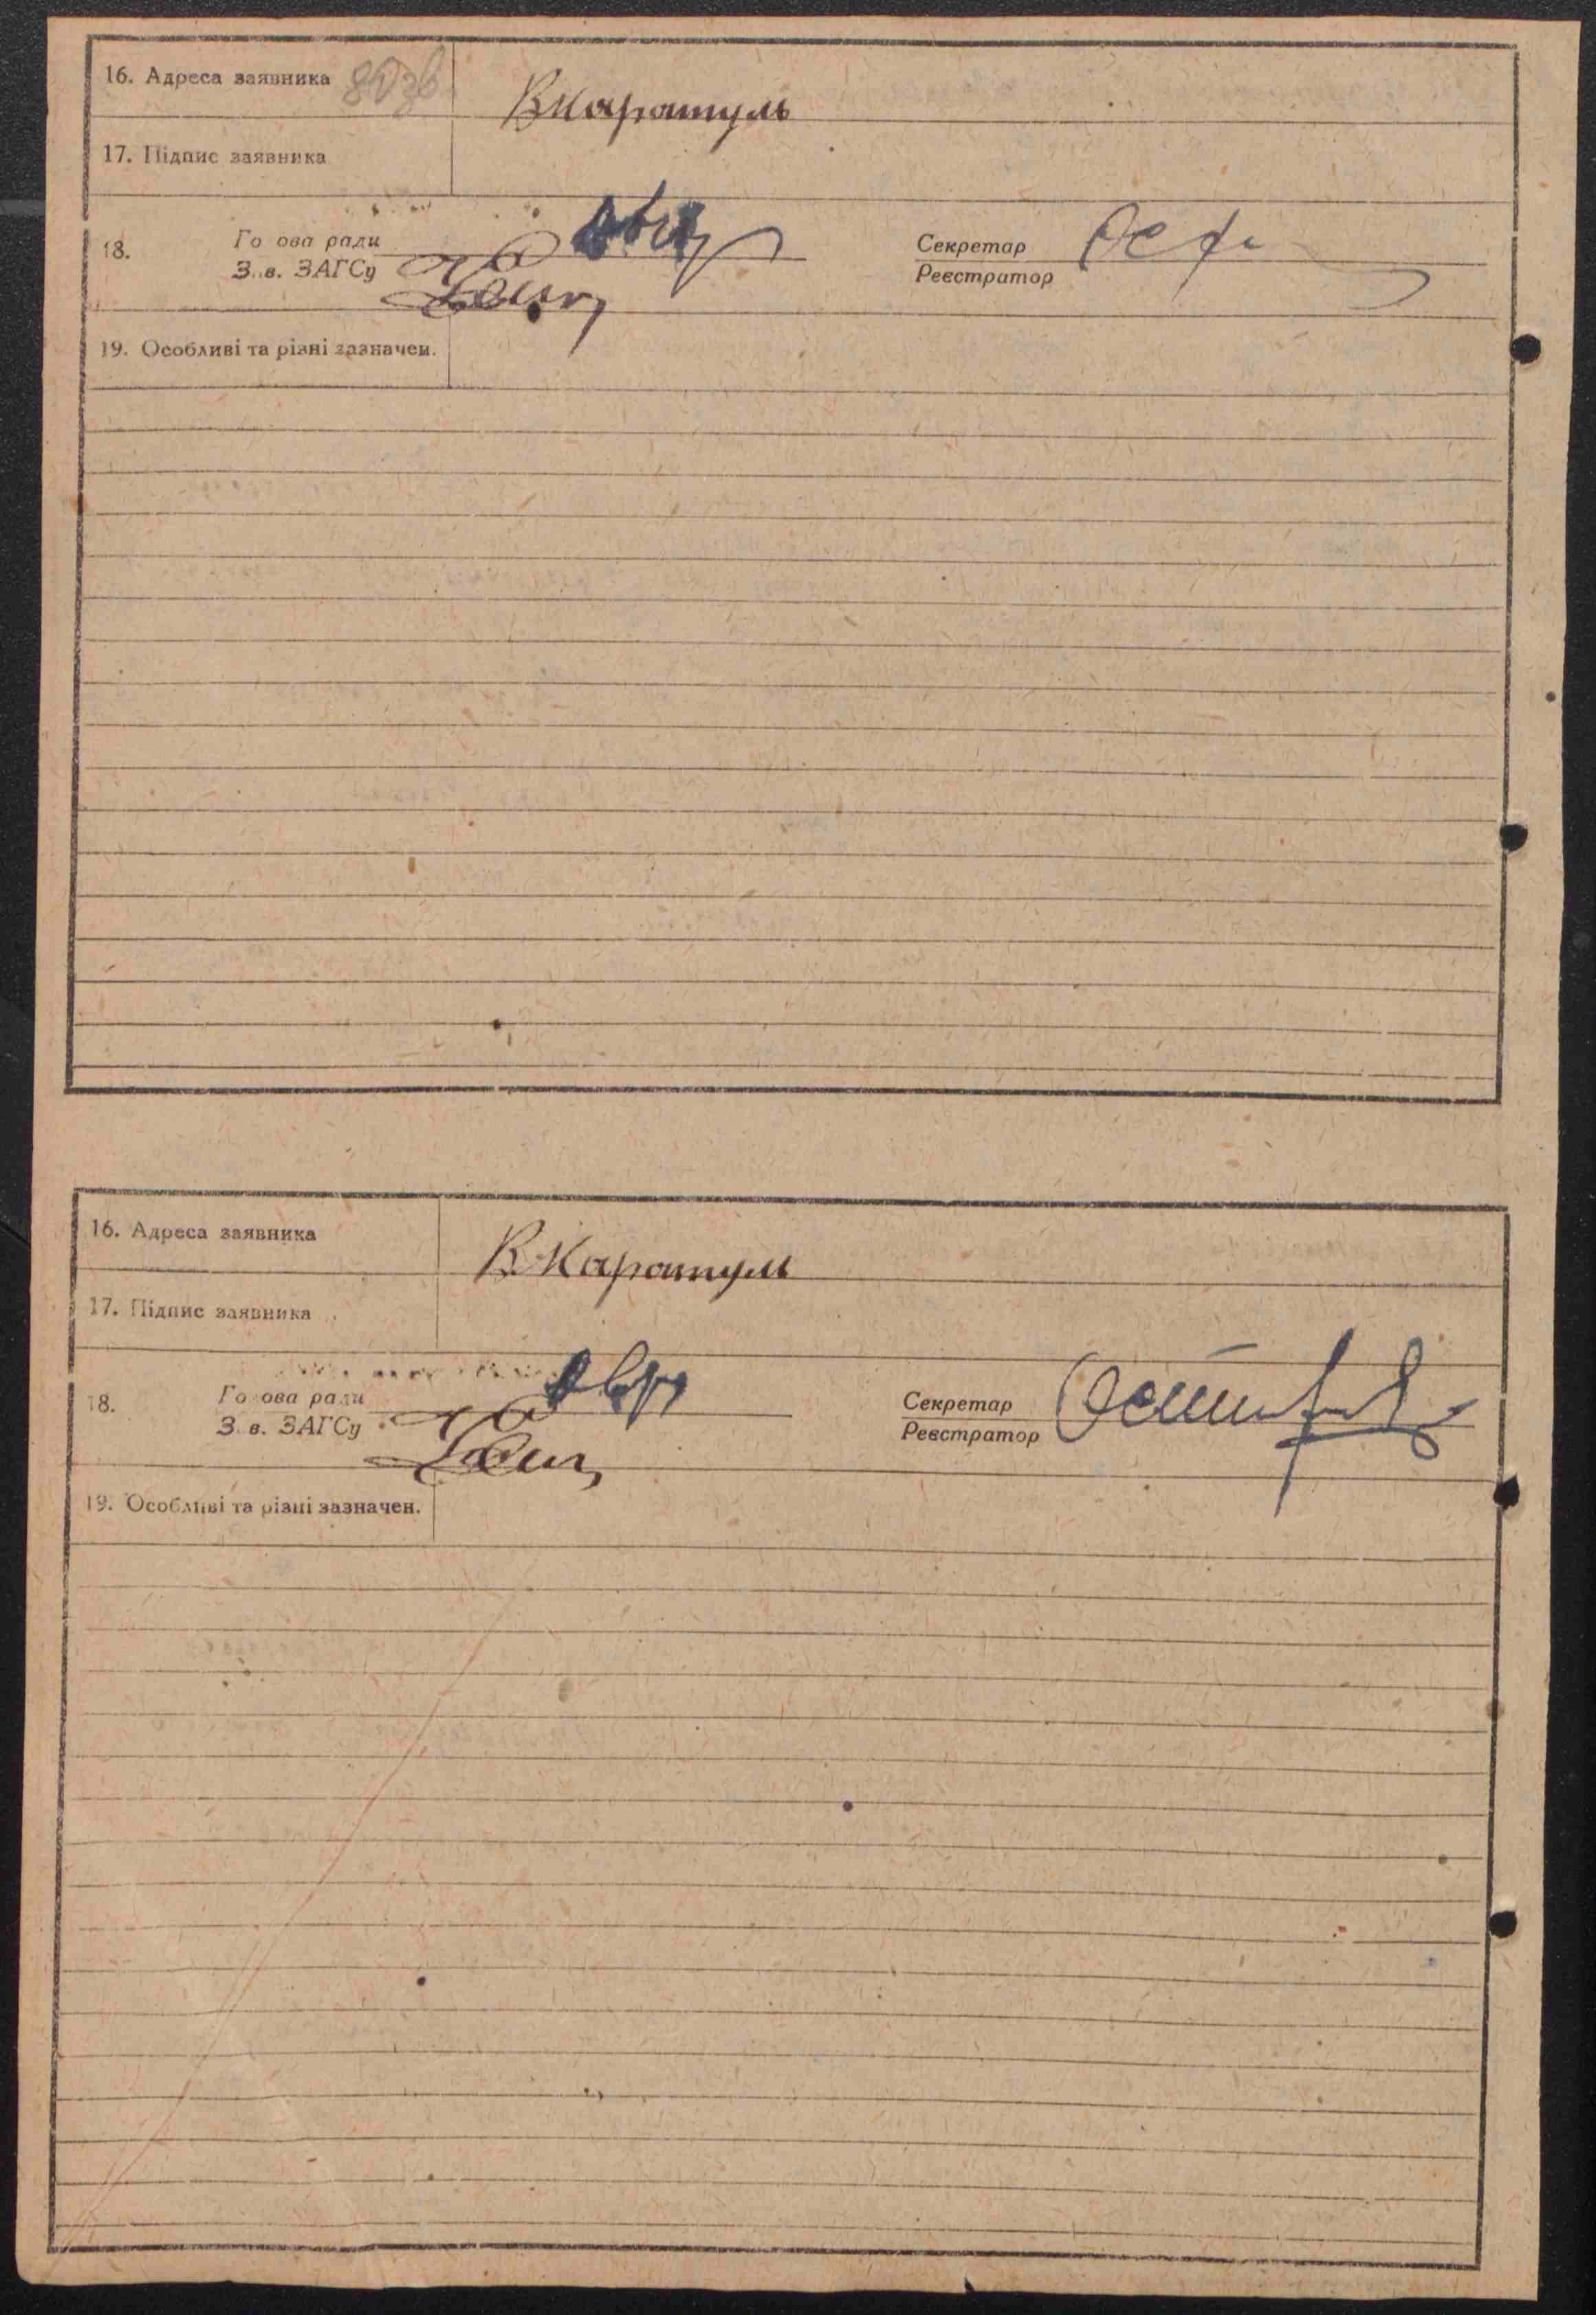 16. Адреса заявника
В Каратуль
17. Підпис заявника
18. Го ова ради
З. в. ЗАГСу
Секретар
Реєстратор
19. Особливі та різні зазначен.
16. Адреса заявника
В. Каратуль
17. Підпис заявника
18. Го ова ради
З. в. ЗАГСу
Секретар
Реєстратор
19. Особливі та різні зазначен.